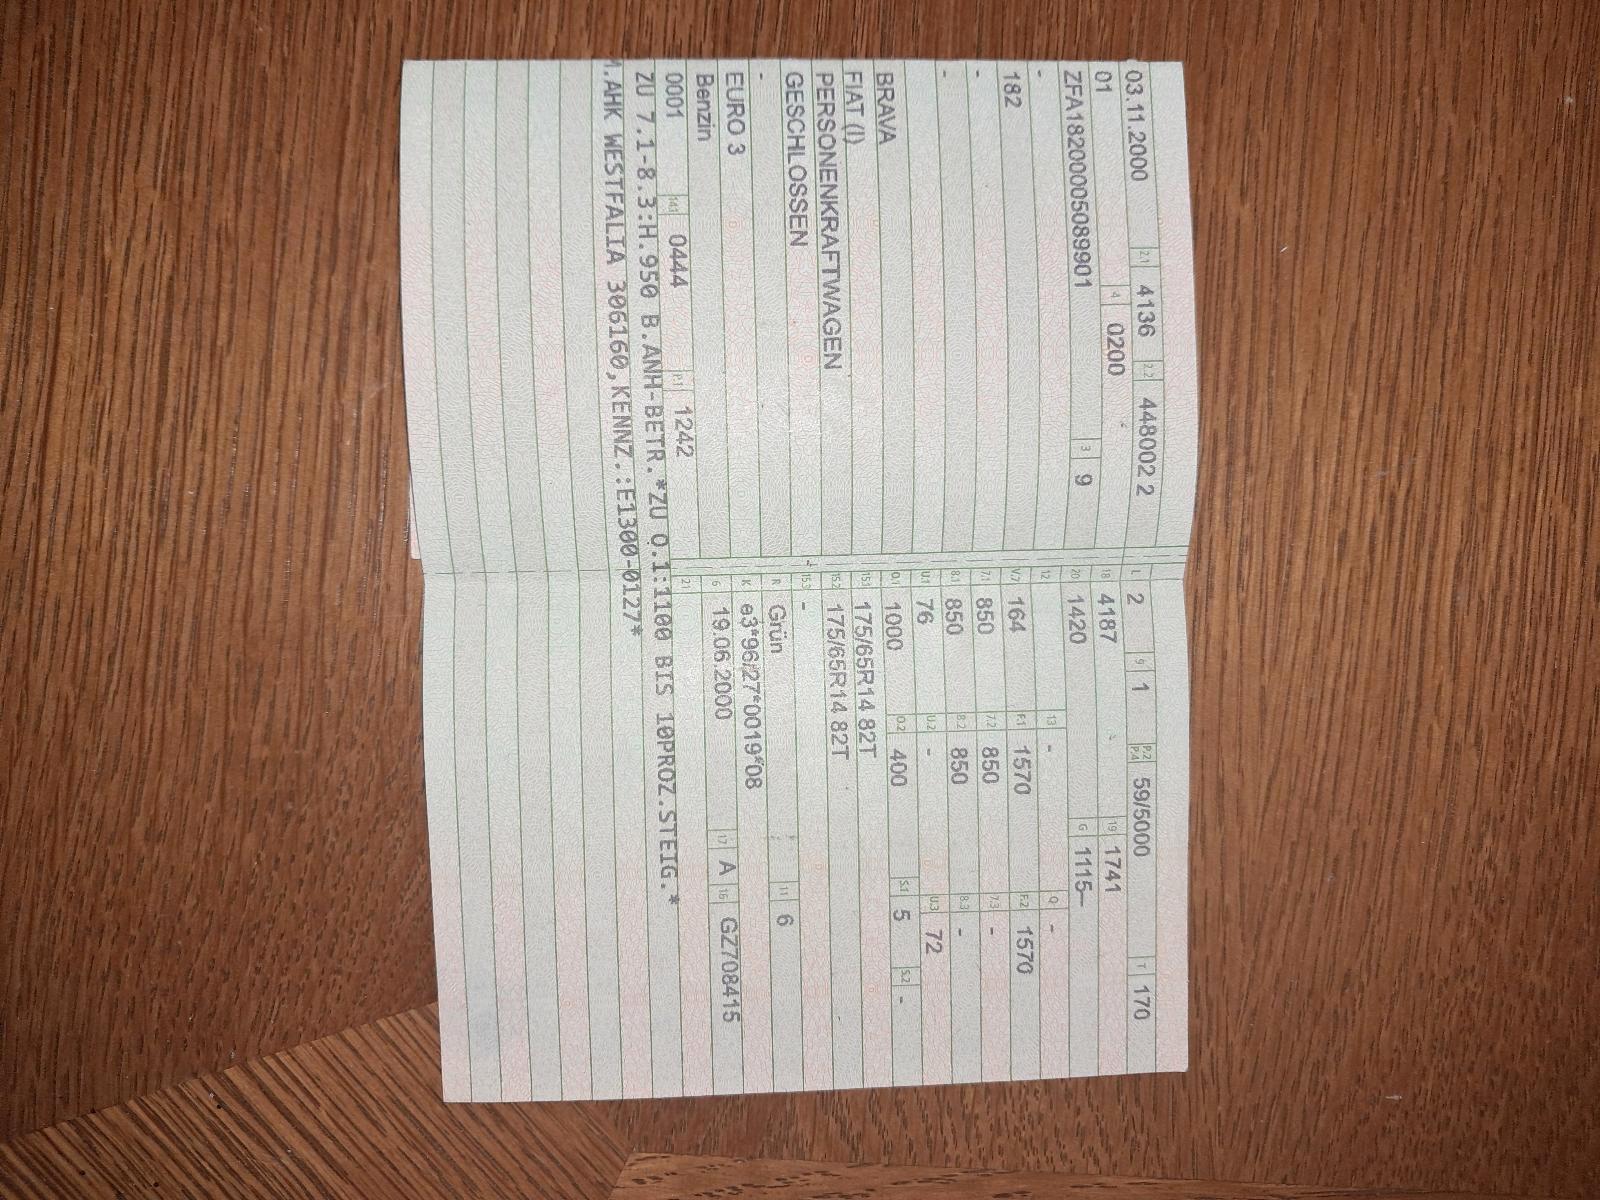 03.11.2000 2.1 4136 2.2 448002 2
01 4 0200
ZFA18200005089901 3 9
-
182
-
-
BRAVA
FIAT (I)
PERSONENKRAFTWAGEN
GESCHLOSSEN
-
EURO 3
Benzin
0001 14.1 0444 P.1 1242
L 2 9 1 P.2 P.4 59/5000 T 170
18 4187 19 1741
20 1420 G 1115--
12 13 - Q -
V.7 164 F.1 1570 F.2 1570
7.1 850 7.2 850 7.3 -
8.1 850 8.2 850 8.3 -
U.1 76 U.2 - U.3 72
O.1 1000 O.2 400 S.1 5 S.2 -
15.1 175/65R14 82T
15.2 175/65R14 82T
15.3 -
R Grün 11 6
K e3*96/27*0019*08
6 19.06.2000 17 A 16 GZ708415
21
ZU 7.1-8.3:H.950 B.ANH-BETR.*ZU O.1:1100 BIS 10PROZ.STEIG.*
M.AHK WESTFALIA 306160,KENNZ.:E1300-0127*